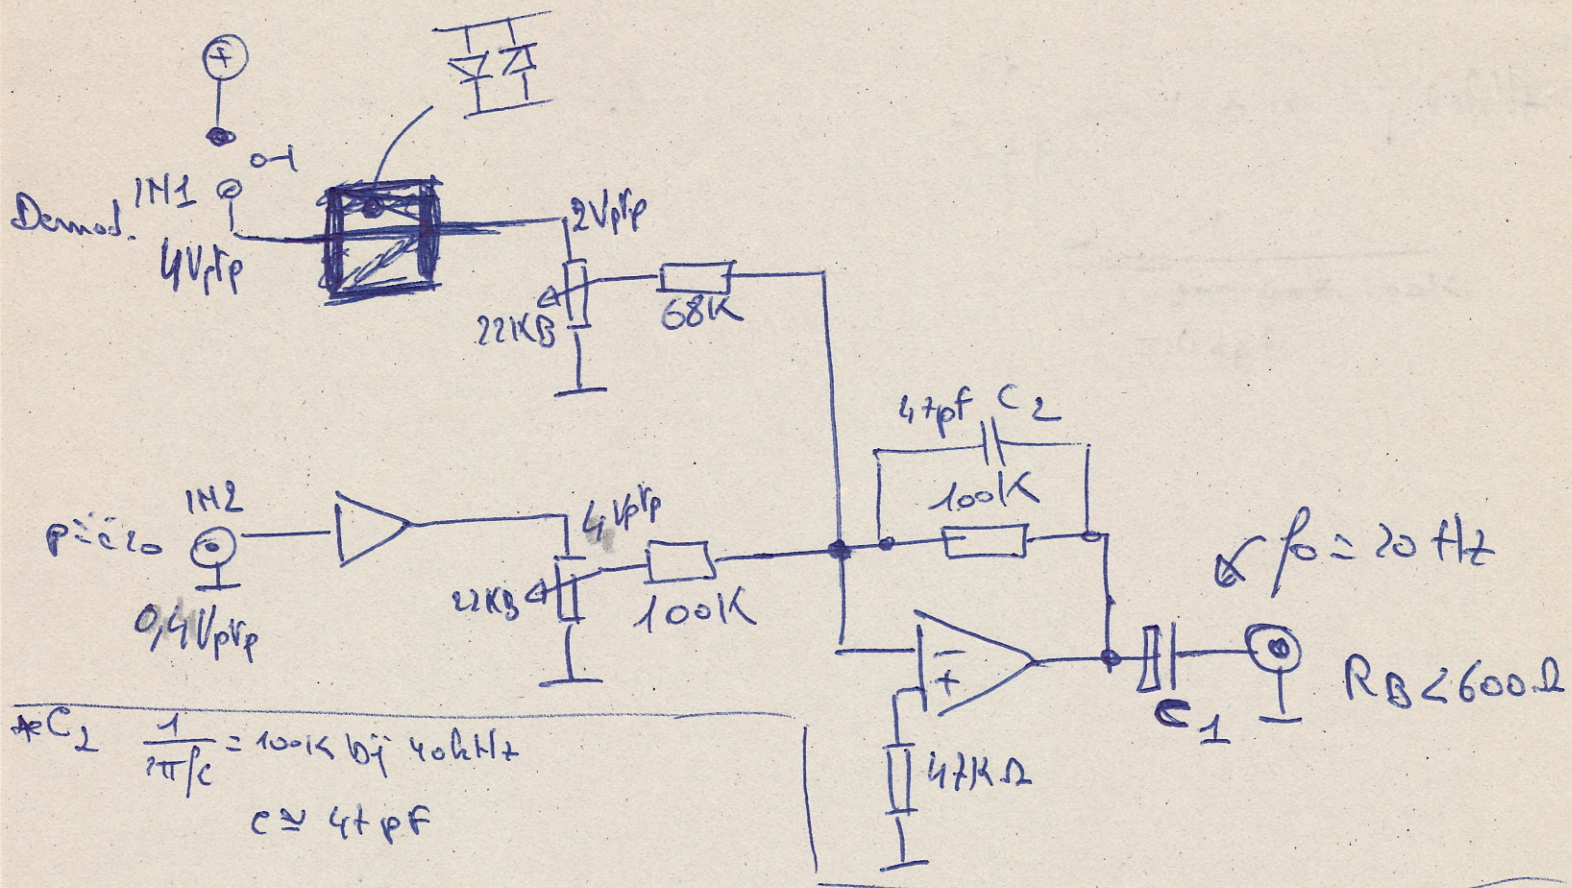 +
IN1
Demod.
4Vptp
2Vptp
22KB
68K
47pF C2
100K
IN2
0,4Vptp
4Vptp
22KB
100K
f0 = 20 Hz
-
+
C1
RB<600Ω
47KΩ
*C2 1/2πfc = 100K bij 40kHz
c ≅ 47pF